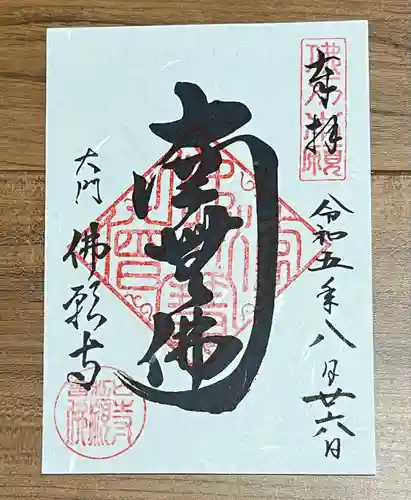 奉拝
令和五年八月廿六日
南無佛
大門
佛願寺